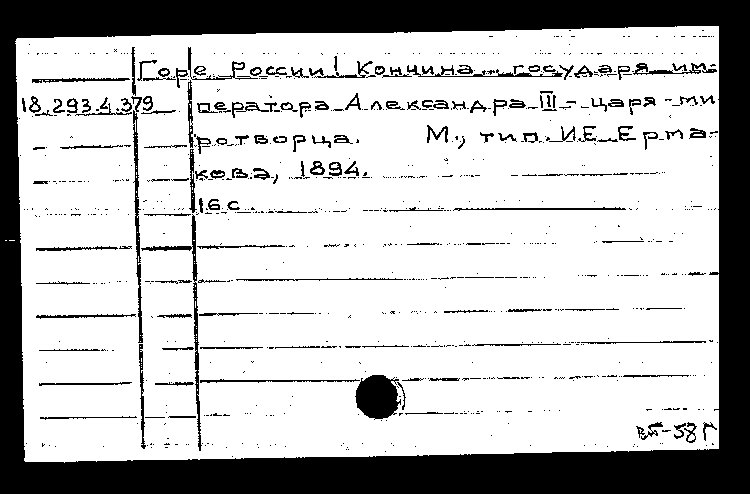 Горе России! Кончина ... государя им-
18.293.4.379 ператора Александра III - царя - ми
ротворца. М., тип. И.Е. Ерма-
кова, 1894.
16 с.
вт-58г